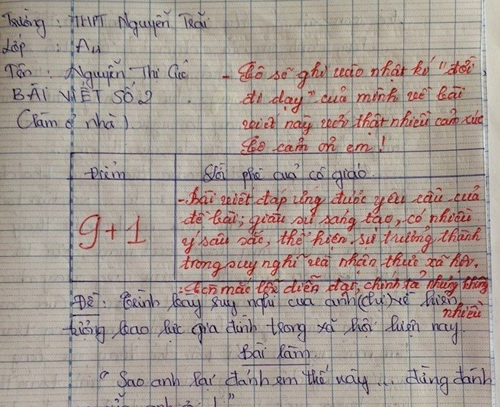 Trường : THPT Nguyễn Trãi
Lớp : A4
Tên : Nguyễn Thị Cúc
BÀI VIẾT SỐ 2
(Làm ở nhà)
- Cô sẽ ghi vào nhật kí "đời
đi dạy" của mình về bài
viết này với thật nhiều cảm xúc
Cô cảm ơn em!
Điểm
Lời phê của cô giáo
9+1
- Bài viết đáp ứng được yêu cầu của
đề bài; giàu sự sáng tạo, có nhiều
ý sâu sắc, thể hiện sự trưởng thành
trong suy nghĩ và nhận thức xã hội.
- Còn mắc lỗi diễn đạt, chính tả nhưng không
nhiều
Đề: Trình bày suy nghĩ của anh (chị) về hiện
tượng bạo lực gia đình trong xã hội hiện nay
Bài làm
"Sao anh lại đánh em thế này ... đừng đánh